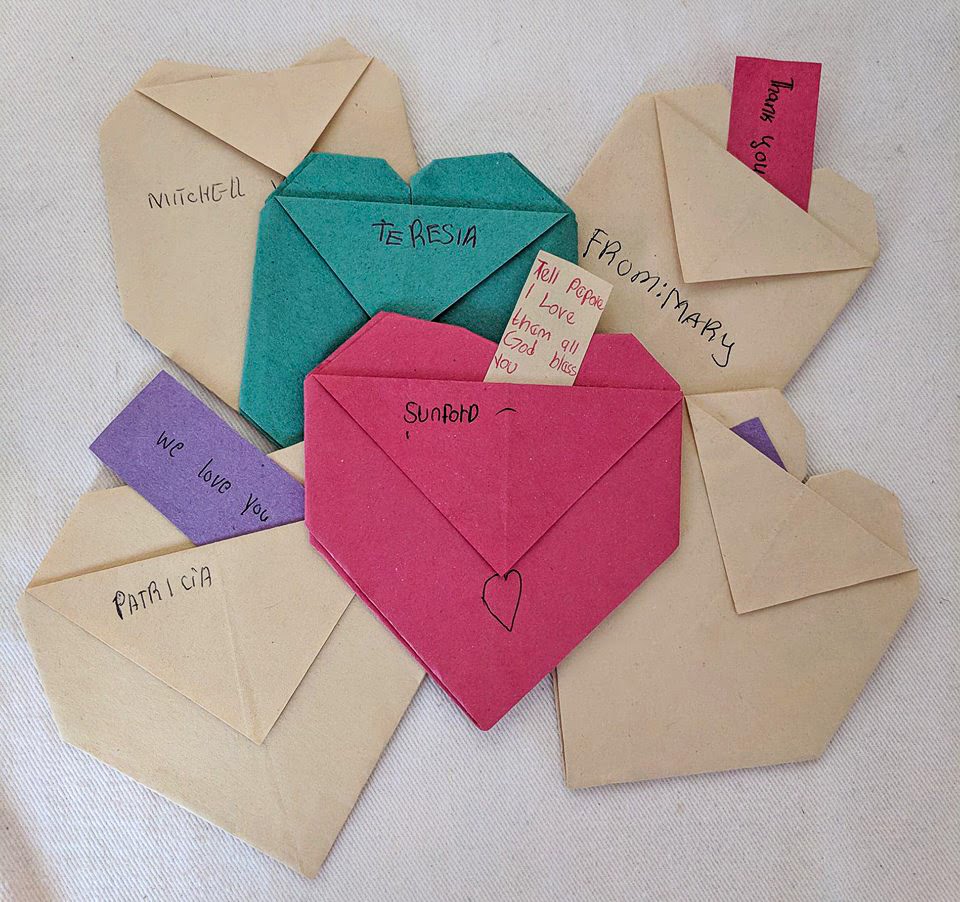 MITCHELL
TERESIA
Thank you
FROM: MARY
Tell pepole
I Love
them all
God blass
you
Sunford
we love you
PATRICIA